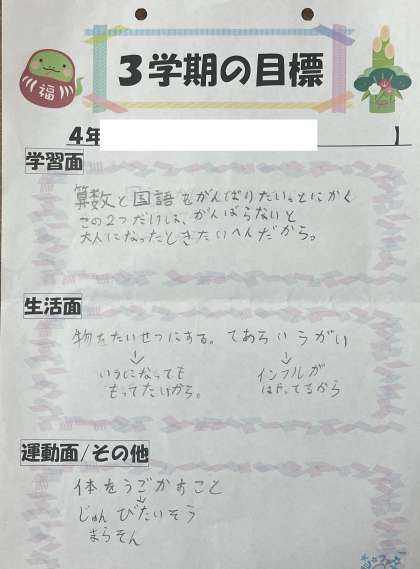 福
3学期の目標
4年
】
学習面
算数と国語をがんばりたい。とにかく
この2つだけは、がんばらないと
大人になったときたいへんだから。
生活面
物をたいせつにする。 てあらいうがい
↓ ↓
いつになっても インフルが
もってたいから。 はやってるから
運動面/その他
体をうごかすこと
↓
じゅんびたいそう
まらそん